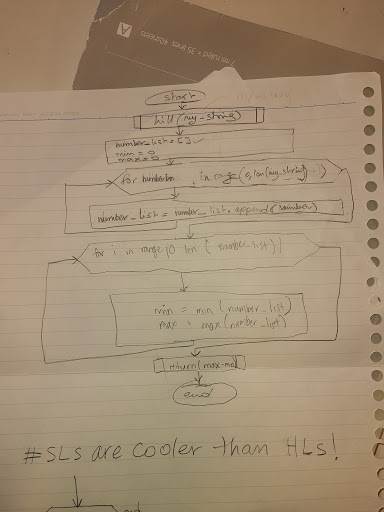 7mm ruled × 35 lines 40sheets
A
start
hill (my-string)
number_list = [ ]
min = 0
max = 0
for number in range (0, len(my_string) - 1)
number_list = number_list.append(number)
for i in range(0 len (number_list))
min = min (number_list)
max = max (number_list)
return(max-
end
#SLs are cooler than HLs!